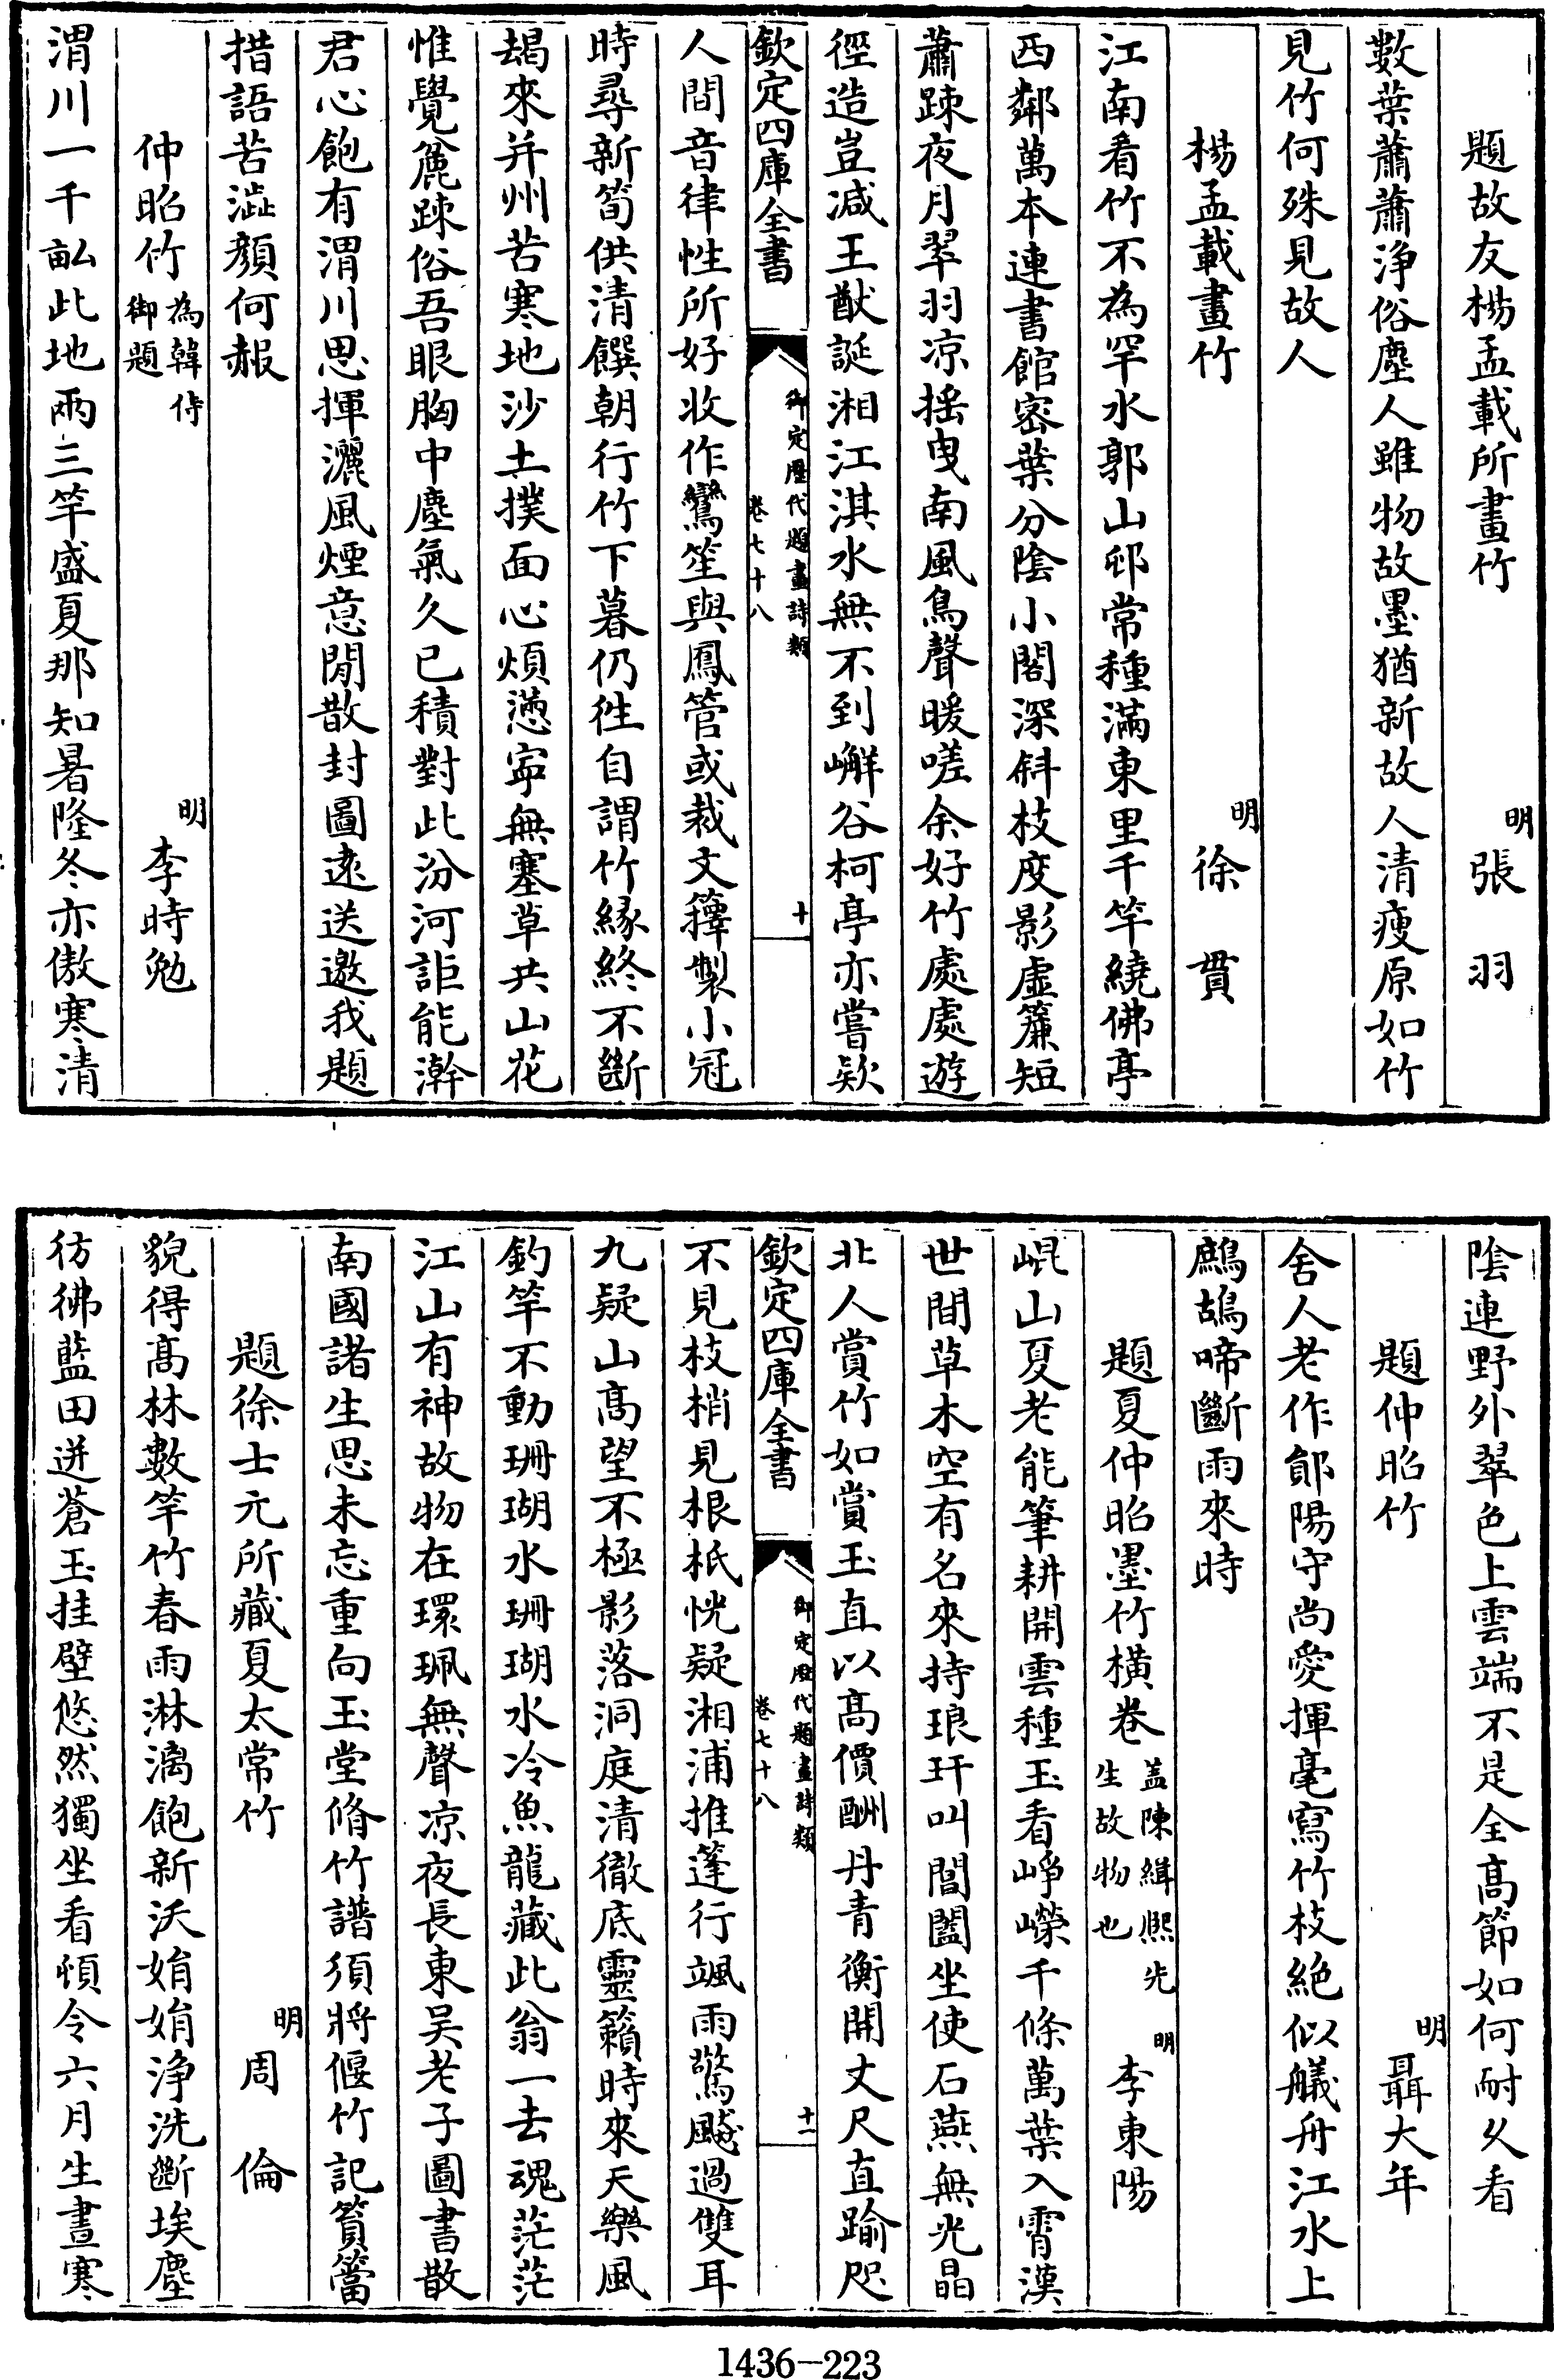 題故友楊孟載所畫竹 明 張羽
數葉蕭蕭淨俗塵人雖物故墨猶新故人清瘦原如竹
見竹何殊見故人
楊孟載畫竹 明 徐賁
江南看竹不為罕水郭山邨常種滿東里千竿繞佛亭
西鄰萬本連書館密葉分陰小閣深斜枝度影虛簾短
蕭踈夜月翠羽凉揺曳南風鳥聲暖嗟余好竹處處遊
徑造豈减王猷誕湘江淇水無不到嶰谷柯亭亦嘗欵
欽定四庫全書 御定歷代題畫詩類 卷七十八 十
人間音律性所好收作鸞笙與鳳管或裁文籜製小冠
時尋新筍供清饌朝行竹下暮仍徃自謂竹緣終不斷
朅來并州苦寒地沙土撲面心煩懣寜無塞草共山花
惟覺麄踈俗吾眼胸中塵氣久已積對此汾河詎能澣
君心飽有渭川思揮灑風煙意閒散封圖逺送邀我題
措語苦澁顏何赧
仲昭竹 為韓侍御題 明 李時勉
渭川一千畝此地兩三竿盛夏那知暑隆冬亦傲寒清
陰連野外翠色上雲端不是全髙節如何耐久看
題仲昭竹 明 聶大年
舍人老作鄖陽守尚愛揮毫寫竹枝絶似艤舟江水上
鷓鴣啼斷雨來時
題夏仲昭墨竹横卷 盖陳緝熙先生故物也 明 李東陽
崐山夏老能筆耕開雲種玉看崢嶸千條萬葉入霄漢
世間草木空有名來持琅玕叫閶闔坐使石燕無光晶
北人賞竹如賞玉直以髙價酬丹青衡開丈尺直踰咫
欽定四庫全書 御定歷代題畫詩類 卷七十八 十一
不見枝梢見根柢恍疑湘浦推篷行颯雨驚飈過雙耳
九疑山髙望不極影落洞庭清徹底靈籟時來天樂風
釣竿不動珊瑚水珊瑚水冷魚龍藏此翁一去魂茫茫
江山有神故物在環珮無聲凉夜長東吴老子圖書散
南國諸生思未忘重向玉堂脩竹譜須將偃竹記篔簹
題徐士元所藏夏太常竹 明 周倫
貌得髙林數竿竹春雨淋漓飽新沃娟娟淨洗斷埃塵
彷彿藍田迸蒼玉挂壁悠然獨坐看頓令六月生晝寒
1436-223